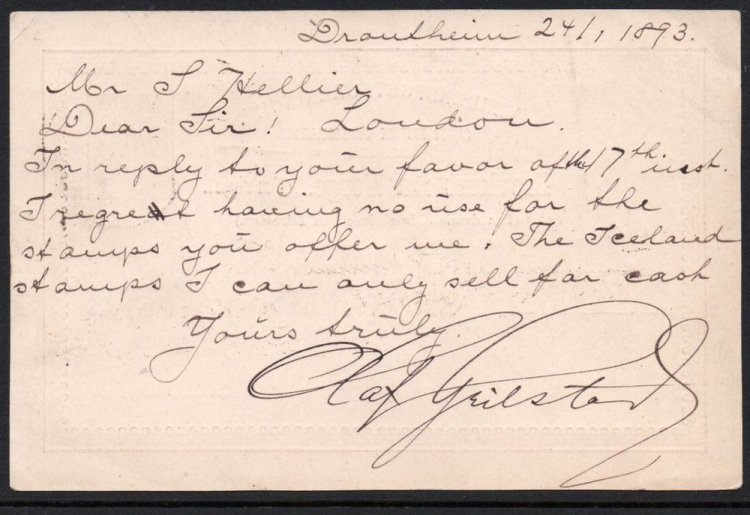 Drontheim 24/1 1893.
Mr S Hellier
Dear Sir! London.
In reply to your favor of the 17th inst.
I regret having no use for the
stamps you offer me. The Iceland
stamps I can only sell for cash
Yours truly.
Olaf Grilstad